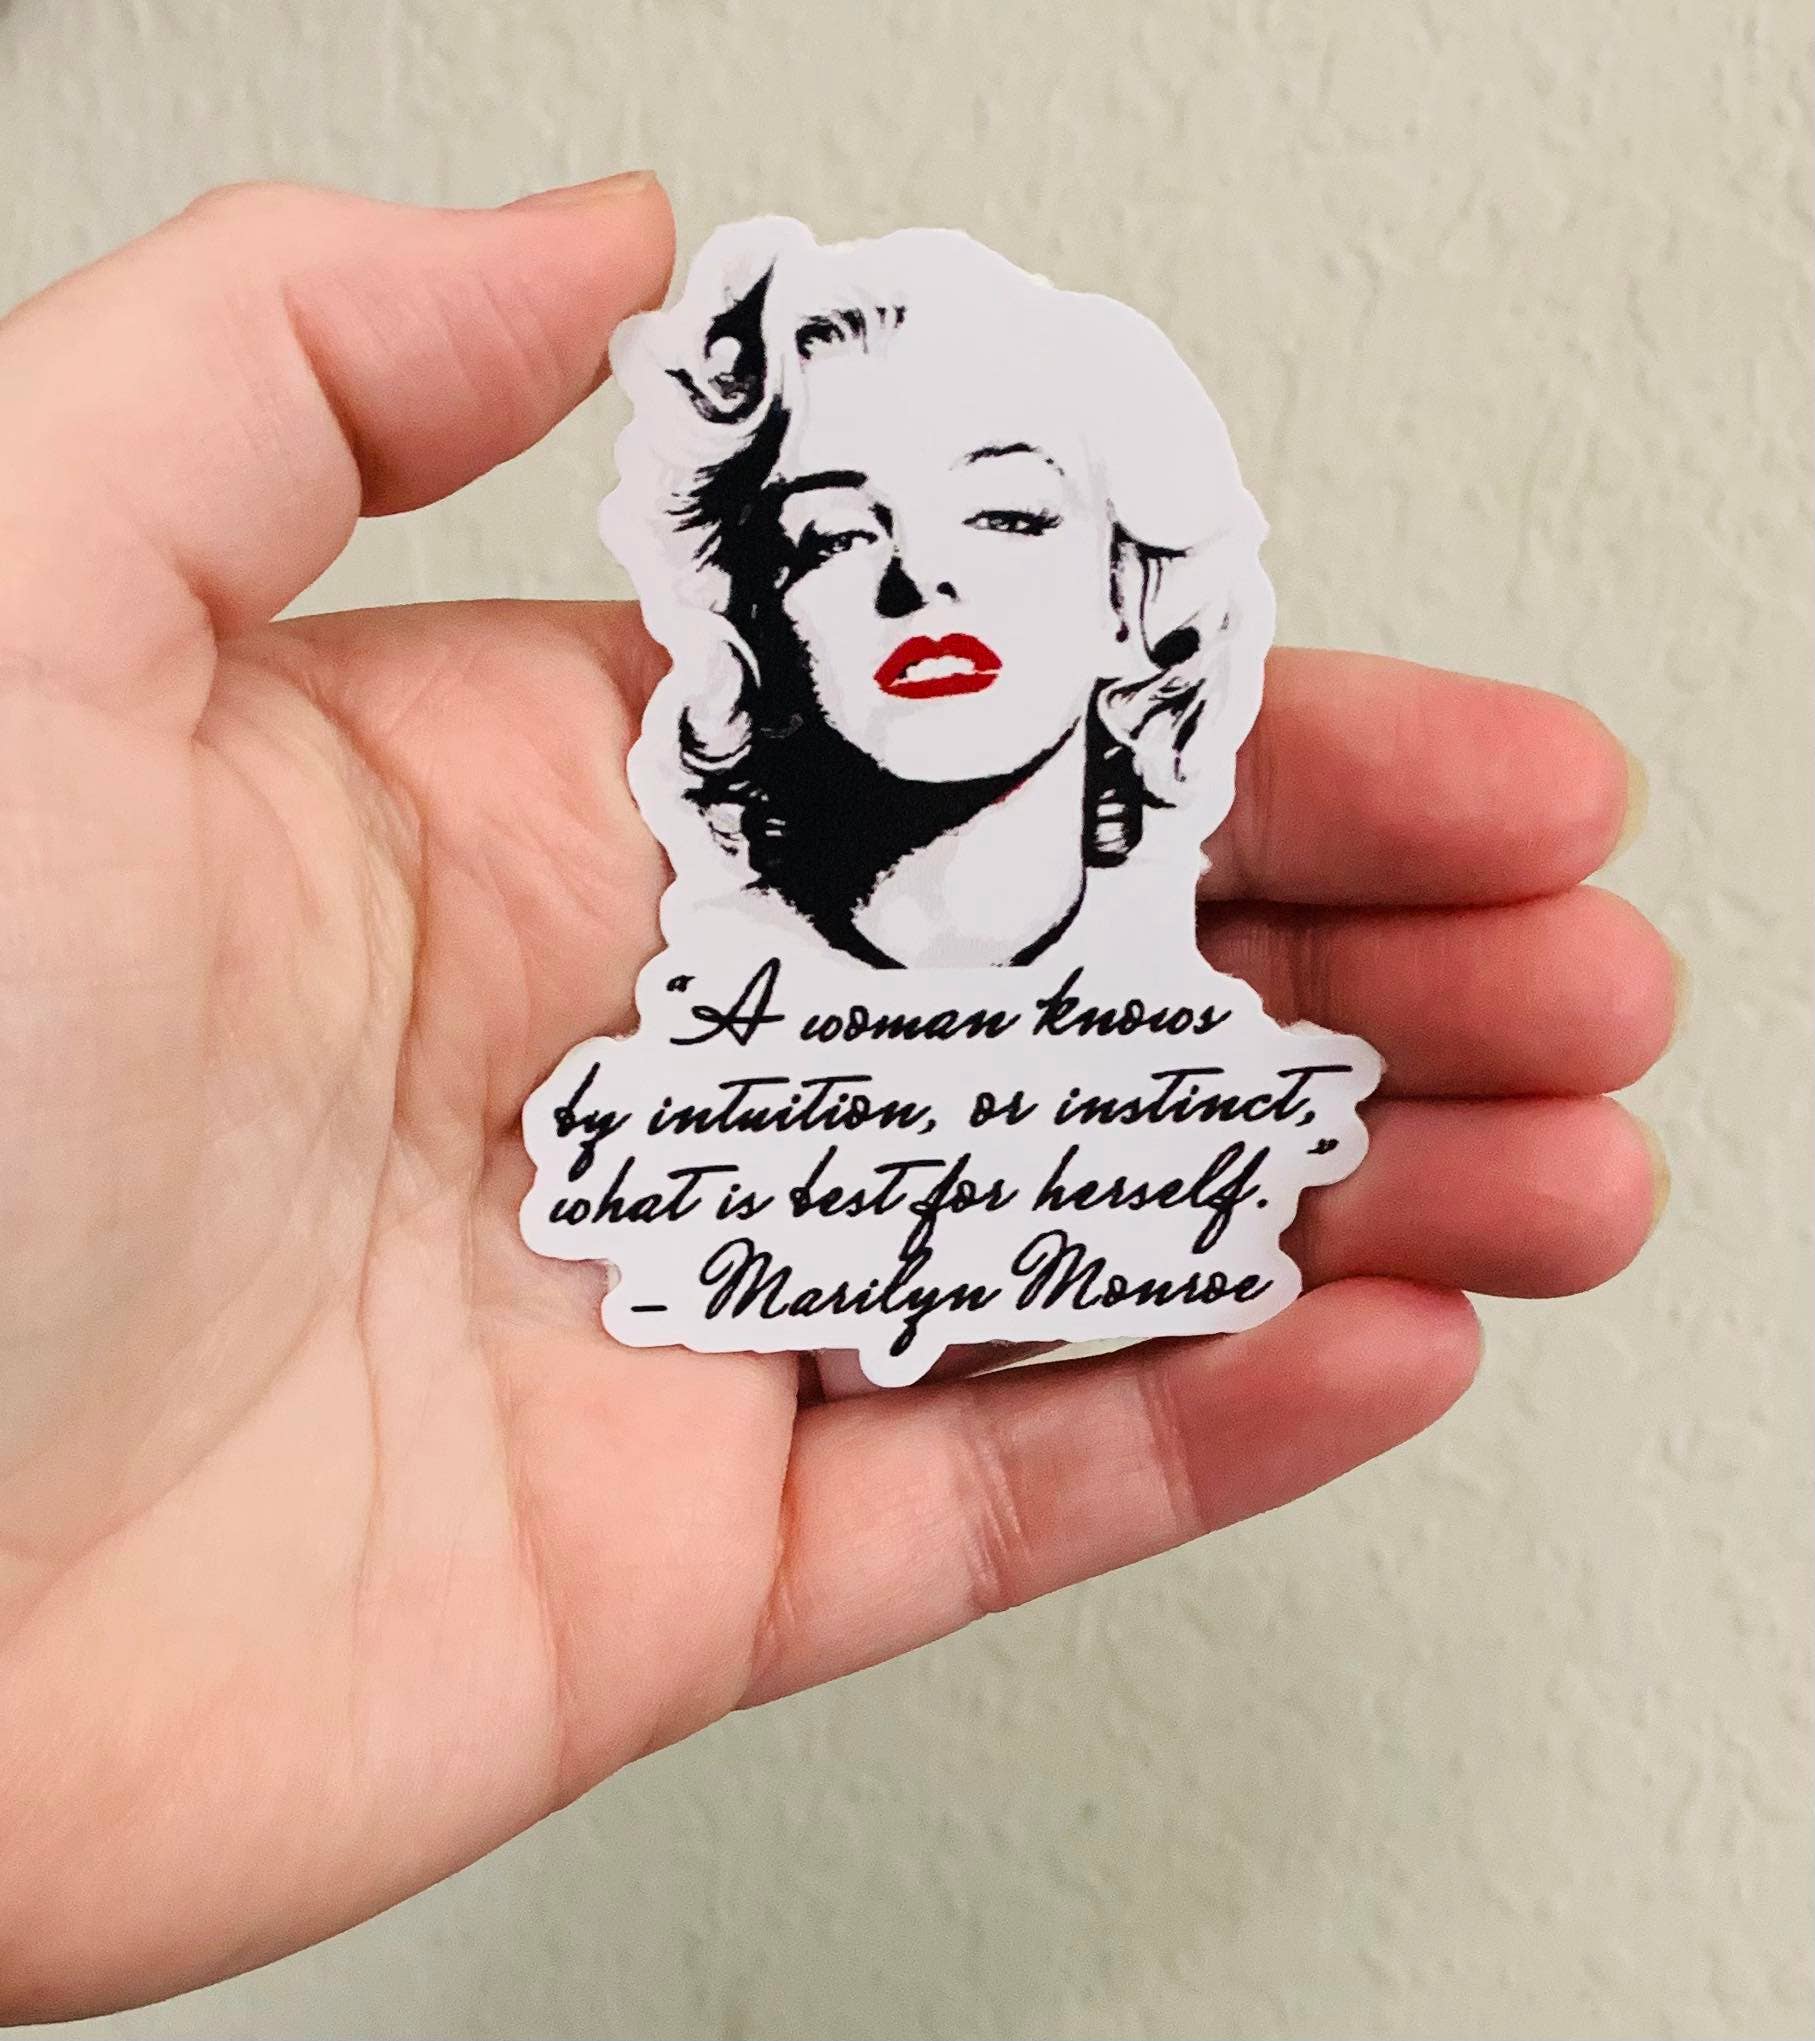 “A woman knows
by intuition, or instinct,
what is best for herself.”
– Marilyn Monroe